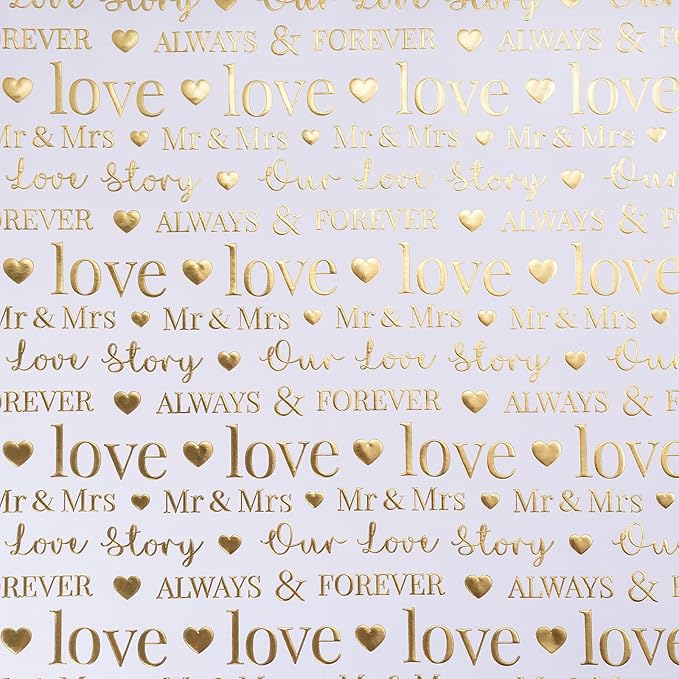 Love Story ♥ Our Love Story ♥ Our
OREVER ♥ ALWAYS & FOREVER ♥ ALWAYS & F
♥ love ♥ love ♥ love ♥ love ♥
Mr & Mrs ♥ Mr & Mrs ♥ Mr & Mrs ♥ Mr & Mrs ♥
Love Story ♥ Our Love Story ♥ Our
OREVER ♥ ALWAYS & FOREVER ♥ ALWAYS & F
♥ love ♥ love ♥ love ♥ love
Mr & Mrs ♥ Mr & Mrs ♥ Mr & Mrs ♥ Mr & Mrs ♥
Love Story ♥ Our Love Story ♥ Our
OREVER ♥ ALWAYS & FOREVER ♥ ALWAYS & F
♥ love ♥ love ♥ love ♥ love
Mr & Mrs ♥ Mr & Mrs ♥ Mr & Mrs ♥ Mr & Mrs ♥
Love Story ♥ Our Love Story ♥ Our
OREVER ♥ ALWAYS & FOREVER ♥ ALWAYS & F
♥ love ♥ love ♥ love ♥ love